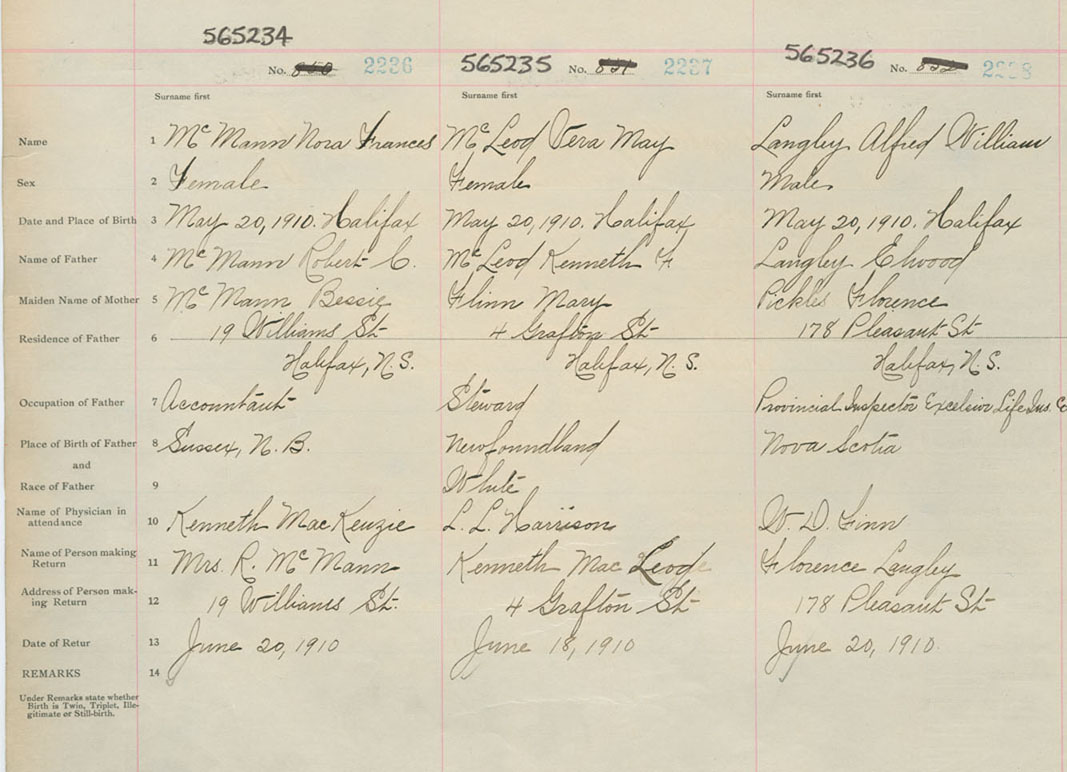 565234 565235 565236
No. 850 2236 No. 851 2237 No. 852 2238
Surname first Surname first Surname first
Name 1 McMann Nora Frances McLeod Vera May Langley Alfred William
Sex 2 Female Female Male
Date and Place of Birth 3 May 20, 1910. Halifax May 20, 1910. Halifax May 20, 1910. Halifax
Name of Father 4 McMann Robert C. McLeod Kenneth F Langley Elwood
Maiden Name of Mother 5 McMann Bessie Flinn Mary Pickles Florence
19 Williams St 4 Grafton St 178 Pleasant St
Residence of Father 6
Halifax, N.S. Halifax, N.S. Halifax, N.S.
Occupation of Father 7 Accountant Steward Provincial Inspector Excelsior Life Ins. Co
Place of Birth of Father 8 Sussex, N.B. Newfoundland Nova Scotia
and
Race of Father 9 White
Name of Physician in
attendance 10 Kenneth MacKenzie L. L. Harrison W. D. Finn
Name of Person making
Return 11 Mrs. R. McMann Kenneth Mac Leod Florence Langley
Address of Person mak-
ing Return 12 19 Williams St. 4 Grafton St 178 Pleasant St
Date of Retur 13 June 20, 1910 June 18, 1910 June 20, 1910.
REMARKS 14
Under Remarks state whether
Birth is Twin, Triplet, Ille-
gitimate or Still-birth.